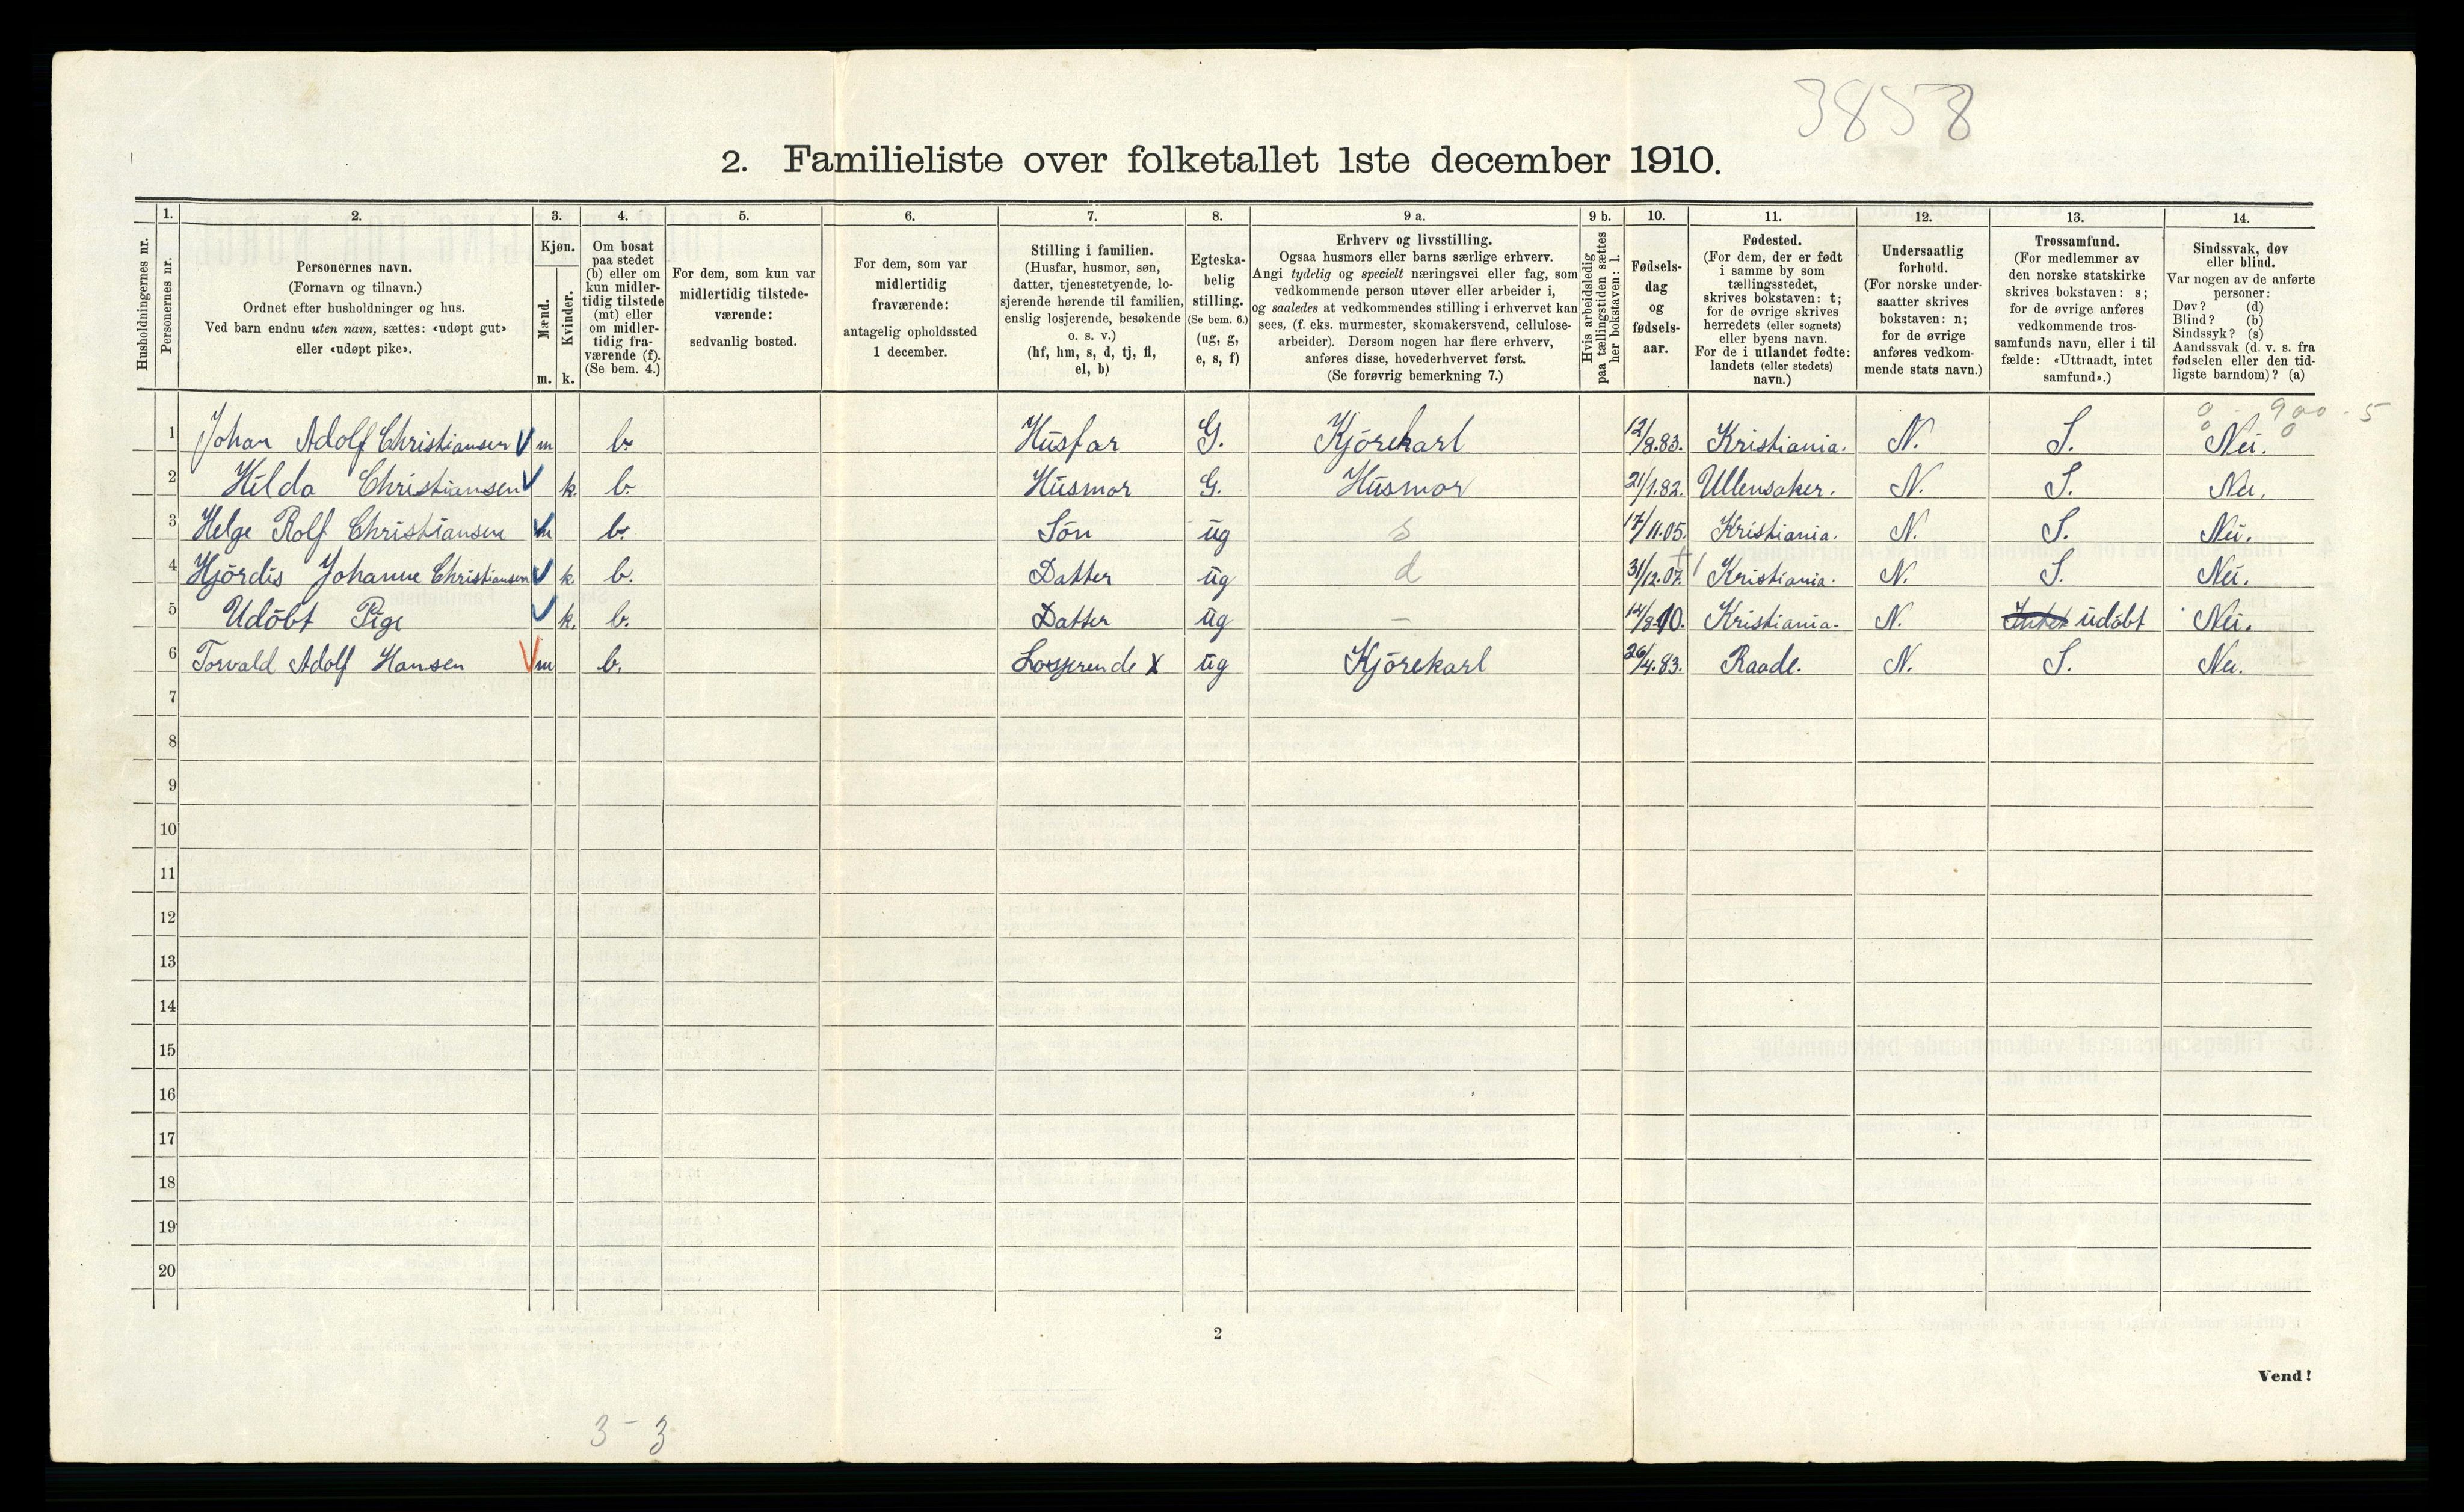 3858
2. Familieliste over folketallet 1ste december 1910.
Husholdningernes nr.
1. Personernes nr.
2. Personernes navn.
(Fornavn og tilnavn.)
Ordnet efter husholdninger og hus.
Ved barn endnu uten navn, sættes: «udøpt gut»
eller «udøpt pike».
3. Kjøn.
Mænd. m.
Kvinder. k.
4. Om bosat
paa stedet
(b) eller om
kun midler-
tidig tilstede
(mt) eller
om midler-
tidig fra-
værende (f).
(Se bem. 4.)
5. For dem, som kun var
midlertidig tilstede-
værende:
sedvanlig bosted.
6. For dem, som var
midlertidig
fraværende:
antagelig opholdssted
1 december.
7. Stilling i familien.
(Husfar, husmor, søn,
datter, tjenestetyende, lo-
sjerende hørende til familien,
enslig losjerende, besøkende
o. s. v.)
(hf, hm, s, d, tj, fl,
el, b)
8. Egteska-
belig
stilling.
(Se bem. 6.)
(ug, g,
e, s, f)
9 a. Erhverv og livsstilling.
Ogsaa husmors eller barns særlige erhverv.
Angi tydelig og specielt næringsvei eller fag, som
vedkommende person utøver eller arbeider i,
og saaledes at vedkommendes stilling i erhvervet kan
sees, (f. eks. murmester, skomakersvend, cellulose-
arbeider). Dersom nogen har flere erhverv,
anføres disse, hovederhvervet først.
(Se forøvrig bemerkning 7.)
9 b. Hvis arbeidsledig
paa tællingstiden sættes
her bokstaven: l.
10. Fødsels-
dag
og
fødsels-
aar.
11. Fødested.
(For dem, der er født
i samme by som
tællingsstedet,
skrives bokstaven: t;
for de øvrige skrives
herredets (eller sognets)
eller byens navn.
For de i utlandet fødte:
landets (eller stedets)
navn.)
12. Undersaatlig
forhold.
(For norske under-
saatter skrives
bokstaven: n;
for de øvrige
anføres vedkom-
mende stats navn.)
13. Trossamfund.
(For medlemmer av
den norske statskirke
skrives bokstaven: s;
for de øvrige anføres
vedkommende tros-
samfunds navn, eller i til
fælde: «Uttraadt, intet
samfund».)
14. Sindssvak, døv
eller blind.
Var nogen av de anførte
personer:
Døv? (d)
Blind? (b)
Sindssyk? (s)
Aandssvak (d. v. s. fra
fødselen eller den tid-
ligste barndom)? (a)
0 - 900 - 5
0 0
1 Johan Adolf Christiansen m b. Husfar G. Kjörekarl 12/8.83. Kristiania. N. S. Nei.
2 Hilda Christiansen k. b. Husmor G. Husmor 21/1.82. Ullensaker. N. S. Nei.
3 Helge Rolf Christiansen m b. Sön ug s 17/11.05. Kristiania. N. S. Nei.
4 Hjördis Johanne Christiansen k. b. Datter ug d 31/12.07. Kristiania. N. S. Nei.
5 Udöbt Pige k. b. Datter ug — 14/8.10. Kristiania. N. Intet udöbt Nei.
6 Torvald Adolf Hansen m b. Losjerende X ug Kjörekarl 26/4.83. Raade. N. S. Nei.
7
8
9
10
11
12
13
14
15
16
17
18
19
20
2
Vend!
3 - 3